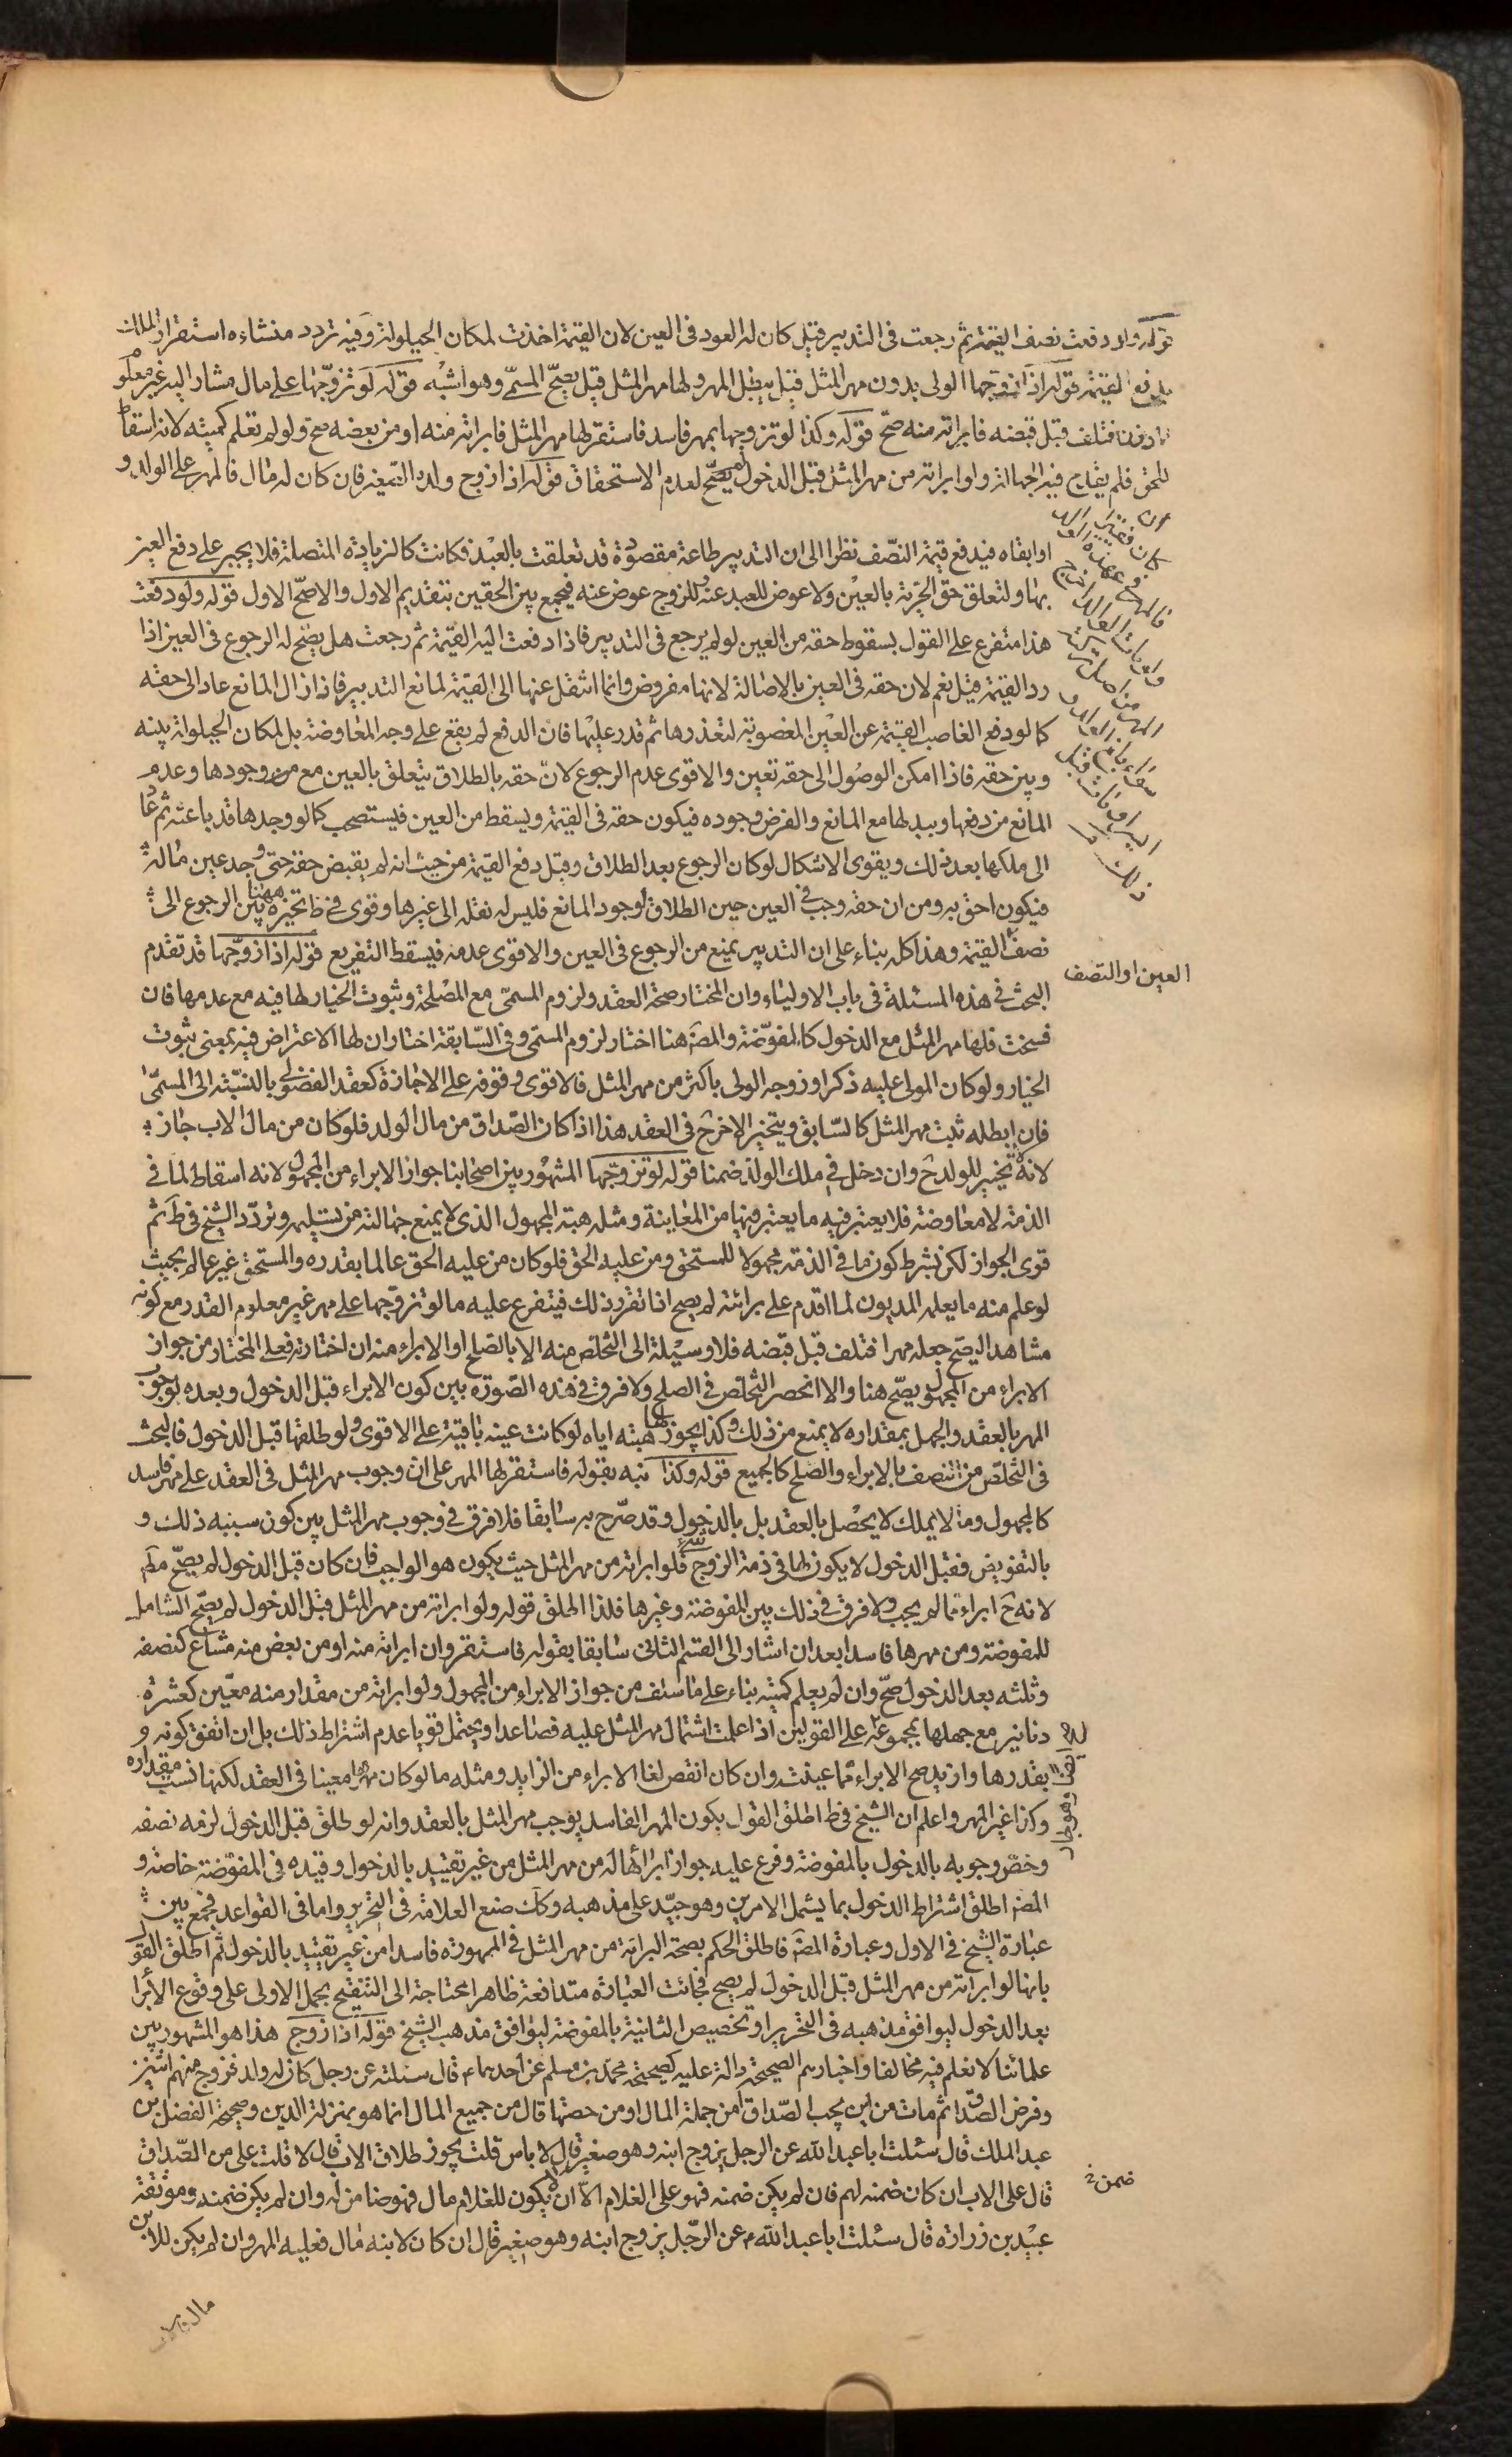 قوله ولو دفعت نصف القيمة ثم رجعت فى التدبير قيل كان له العود فى العين لان القيمة اخذت لمكان الحيلولة وفيه تردد منشاءه استقرار الملك
بدفع القيمة قوله اذا زوجها الولى بدون مهر المثل قيل يبطل المهر ولها مهر المثل وقيل يصح المسمى وهو اشبه قوله لو تزوجها على مال مشار اليه غير معلوم
الوزن فتلف قبل قبضه فابراته منه صح قوله وكذا لو تزوجها بمهر فاسد فاستقر لها مهر المثل فابراته منه او من بعضه صح ولو لم تعلم كميته لانه اسقاط
للحق فلم يقدح فيه الجهالة ولو ابراته من مهر المثل قبل الدخول لم يصح لعدم الاستحقاق قوله اذا زوج ولده الصغير فان كان له مال فالمهر على الولد و
ان كان فقيرا فالمهر فى عهدة الوالد
ولو مات الوالد اخرج المهر من اصل تركته
سواء بلغ الولد وايسر او مات قبل
ذلك
او ابقاه فيدفع قيمة النصف نظرا الى ان التدبير طاعة مقصودة قد تعلقت بالعبد فكانت كالزيادة المتصلة فلا يجبر على دفع العين
بها ولتعلق حق الحرية بالعين ولا عوض للعبد عنه وللزوج عوض عنه فيجمع بين الحقين بتقديم الاول والاصح الاول قوله ولو دفعت
هذا متفرع على القول بسقوط حقه من العين لو لم يرجع فى التدبير فاذا دفعت اليه القيمة ثم رجعت هل يصح له الرجوع فى العين اذا
رد القيمة قيل نعم لان حقه فى العين بالاصالة لانها مفروض وانما انتقل عنها الى القيمة لمانع التدبير فاذا زال المانع عاد الى حقه
كما لو دفع الغاصب القيمة عن العين المغصوبة لتعذرها ثم قدر عليها فان الدفع لم يقع على وجه المعاوضة بل لمكان الحيلولة بينه
وبين حقه فاذا امكن الوصول الى حقه تعين والاقوى عدم الرجوع لان حقه بالطلاق يتعلق بالعين مع مرن وجودها وعدم
المانع من دفعها وببدلها مع المانع والفرض وجوده فيكون حقه فى القيمة ويسقط من العين فيستصحب كما لو وجدها قد باعته ثم عاد
الى ملكها بعد ذلك ويقوى الاشكال لو كان الرجوع بعد الطلاق وقبل دفع القيمة من حيث انه لم يقبض حقه حتى وجد عين ماله
فيكون احق به ومن ان حقه وجب فى العين حين الطلاق لوجود المانع فليس له نقله الى غيرها وقوى فى ط تخيره ههنا بين الرجوع الى
نصف القيمة وهذا كله بناء على ان التدبير يمنع من الرجوع فى العين والاقوى عدمه فيسقط التفريع قوله اذا زوجها قد تقدم
العين او النصف
البحث فى هذه المسئلة فى باب الاولياء وان المختار صحة العقد ولزوم المسمى مع المصلحة وثبوت الخيار لها فيه مع عدمها فان
فسخت فلها مهر المثل مع الدخول كالمفوضة والمصه هنا اختار لزوم المسمى وفى السابقة اختار ان لها الاعتراض فيه بمعنى ثبوت
الخيار ولو كان المولى عليه ذكرا وزوجه الولى باكثر من مهر المثل فالاقوى وقوفه على الاجازة كعقد الفضولى بالنسبة الى المسمى
فان ابطله ثبت مهر المثل كالسابق ويتخير الاخر ح فى العقد هذا اذا كان الصداق من مال الولد فلو كان من مال الاب جاز
لانه تخيير للولد ح وان دخل فى ملك الولد ضمنا قوله لو تزوجها المشهور بين اصحابنا جواز الابراء من المجهول لانه اسقاط لما فى
الذمة لا معاوضة فلا يعتبر فيه ما يعتبر فيها من المعاينة ومثله هبة المجهول الذى لا يمنع جهالته من تسليمه وتردد الشيخ فى ط ثم
قوى الجواز لكن بشرط كون ما فى الذمة مجهولا للمستحق ومن عليه الحق فلو كان من عليه الحق عالما بقدره والمستحق غير عالم بحيث
لو علم منه ما يعلمه المديون لما اقدم على برائته لم يصح اذا تقرر ذلك فيتفرع عليه ما لو تزوجها على مهر غير معلوم القدر مع كونه
مشاهدا ليصح جعله مهرا فتلف قبل قبضه فلا وسيلة الى التخلص منه الا بالصلح او الابراء منه ان اختارته فعلى المختار من جواز
الابراء من المجهول يصح هنا والا انحصر التخلص فى الصلح ولا فرق فى هذه الصورة بين كون الابراء قبل الدخول وبعده لوجوب
المهر بالعقد والجهل بمقداره لا يمنع من ذلك وكذا يجوز لها هبته اياه لو كانت عينه باقية على الاقوى ولو طلقها قبل الدخول فالبحث
فى التخلص من النصف بالابراء والصلح كالجميع قوله وكذا نبه بقوله فاستقر لها المهر على ان وجوب مهر المثل فى العقد على مهر فاسد
كالمجهول وما لا يملك لا يحصل بالعقد بل بالدخول وقد صرح به سابقا فلا فرق فى وجوب مهر المثل بين كون سببه ذلك و
بالتفويض فقبل الدخول لا يكون لها فى ذمة الزوج شىء فلو ابراته من مهر المثل حيث يكون هو الواجب فان كان قبل الدخول لم يصح مطم
لانه ح ابراء مما لم يجب ولا فرق فى ذلك بين المفوضة وغيرها فلذا اطلق قوله ولو ابراته من مهر المثل قبل الدخول لم يصح الشامل
للمفوضة ومن مهرها فاسدا بعد ان اشار الى القسم الثانى سابقا بقوله فاستقر وان ابراته منه او من بعض منه مشاع كنصفه
وثلثه بعد الدخول صح وان لم يعلم كميته بناء على ما سلف من جواز الابراء من المجهول ولو ابراته من مقدار منه معين كعشرة
دنانير مع جهلها بمجموعه على القولين اذا علمت اشتمال مهر المثل عليه فصاعدا ويحتمل قويا عدم اشتراط ذلك بل ان اتفق كونه و
بقدرها وازيد صح الابراء مما عينت وان كان انقص لغا الابراء من الزايد ومثله ما لو كان مهرا معينا فى العقد لكنها نسيت مقداره
وكذا غير المهر واعلم ان الشيخ فى ط اطلق القول بكون المهر الفاسد يوجب مهر المثل بالعقد وانه لو طلق قبل الدخول لزمه نصفه
وخص وجوبه بالدخول بالمفوضة وفرع عليه جواز ابرائها له من مهر المثل من غير تقييد بالدخول وقيده فى المفوضة خاصة و
المصه اطلق اشتراط الدخول بما يشمل الامرين وهو جيد على مذهبه وكك صنع العلامة فى التحرير واما فى القواعد فجمع بين
عبارة الشيخ فى الاول وعبارة المصه فاطلق الحكم بصحة البراءة من مهر المثل فى الممهورة فاسدا من غير تقييد بالدخول ثم اطلق القول
بانها لو ابراته من مهر المثل قبل الدخول لم يصح فجائت العبارة متدافعة ظاهرا محتاجة الى التنقيح بحمل الاولى على وقوع الابراء
بعد الدخول ليوافق مذهبه فى التحرير او تخصيص الثانية بالمفوضة ليوافق مذهب الشيخ قوله اذا زوج هذا هو المشهور بين
علمائنا لا نعلم فيه مخالفا واخبارهم الصحيحة دالة عليه كصحيحة محمد بن مسلم عن احدهما ع قال سئلته عن رجل كان له ولد فزوج منهم اثنين
وفرض الصداق ثم مات من اين يحسب الصداق من جملة المال او من حصتها قال من جميع المال انما هو بمنزلة الدين وصحيحة الفضل بن
عبد الملك قال سئلت ابا عبد الله عن الرجل يزوج ابنه وهو صغير قال لا باس قلت يجوز طلاق الاب قال لا قلت على من الصداق
قال على الاب ان كان ضمنه لهم فان لم يكن ضمنه فهو على الغلام الا ان لا يكون للغلام مال فهو ضامن له وان لم يكن ضمنه وموثقة
ضمن خ
عبيد بن زرارة قال سئلت ابا عبد الله ع عن الرجل يزوج ابنه وهو صغير قال ان كان لابنه مال فعليه المهر وان لم يكن للابن
مال فالاب